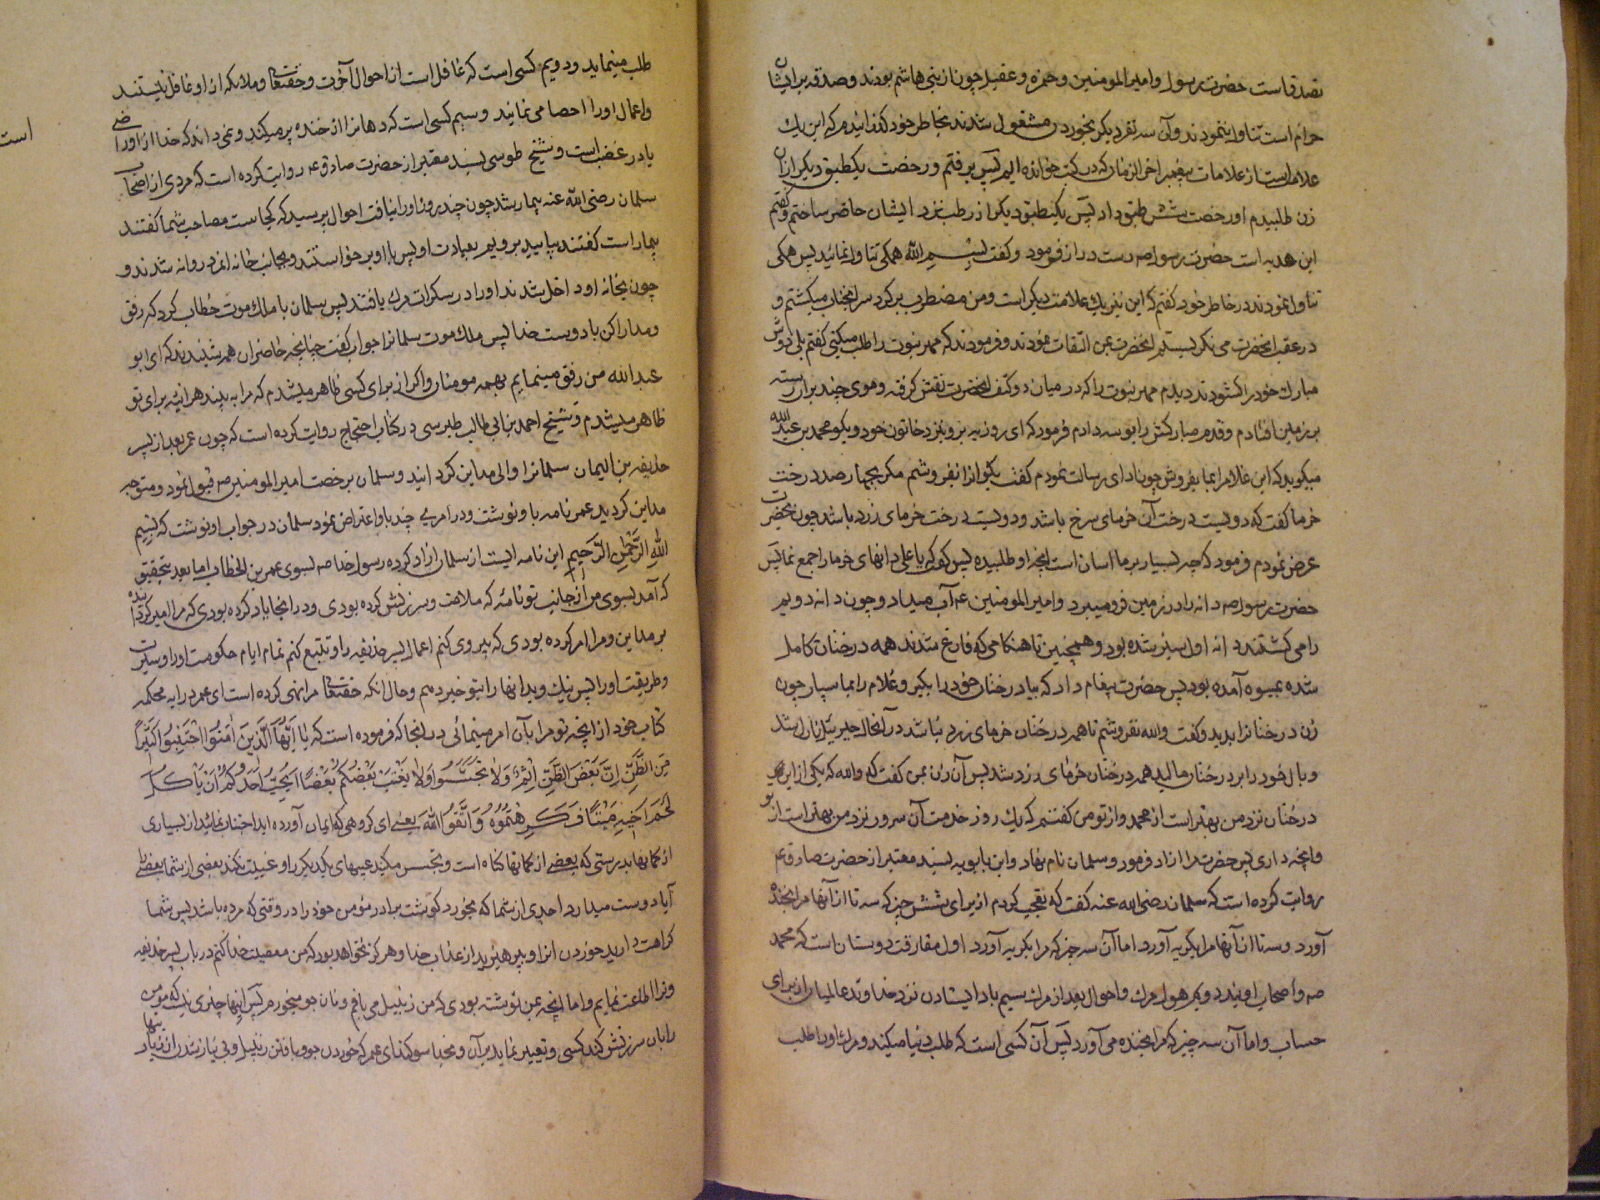 تصدقاست حضرت رسول و امیرالمومنین و حمزه و عقیل چون از بنی هاشم بودند و صدقه بر ایشان
حرام است تناول ننمودند و آن سه نفر دیگر بخوردن مشغول شدند بخاطر خود گذرانیدم که این یک
علامت است از علامات پیغمبر آخرالزمان که در کتب خوانده ایم پس برفتم و رخصت یکطبق دیگر از آن
زن طلبیدم او رخصت شش طبق داد پس یکطبق دیگر از رطب نزد ایشان حاضر ساختم و گفتم
این هدیه است حضرت رسول ص دست دراز فرمود و گفت بسم الله همگی تناول نمائید پس همگی
تناول نمودند در خاطر خود گفتم که این نیز یک علامت دیگر است و من مضطرب بر گرد سر آنجناب میگشتم و
در عقب آنحضرت می نگریستم آنحضرت بمن التفات نمودند و فرمودند که مهر نبوت را طلب میکنی گفتم بلی دوش
مبارک خود را گشودند دیدم مهر نبوت را که در میان دو کتف آنحضرت نقش گرفته و موی چند بر آن رسته
بر زمین افتادم و قدم مبارکش را بوسه دادم فرمود که ای روزبه برو بنزد خاتون خود و بگو محمد بن عبدالله
میگوید که این غلام را بما بفروش چون ادای رسالت نمودم گفت بگو او را نفروشم مگر بچهارصد درخت
خرما گفت که دویست درخت آن خرمای سرخ باشد و دویست درخت خرمای زرد باشد چون بحضرت
عرض نمودم فرمود که چه بسیار بر ما آسان است آنچه او طلبیده پس گفت که یا علی دانهای خرما را جمع نما پس
حضرت رسول ص دانه را در زمین فرو میبرد و امیرالمومنین ع آب میداد و چون دانه دویم
را می کشتند دانه اول سبز شده بود و همچنین تا هنگامی که فارغ شدند همه درختان کامل
شده بمیوه آمده بود پس حضرت پیغام داد که بیا درختان خود را بگیر و غلام را بما سپار چون
زن درختان را بدید گفت والله نفروشم تا همه درختان خرمای زرد نباشد در آنحال جبرئیل نازل شد
و بال خود را بر درختان مالید همه درختان خرمای زرد شد پس آن زن بمن گفت که والله که یکی از این
درختان نزد من بهتر است از محمد و از تو من گفتم که یک روز خدمت آن سرور نزد من بهتر است از تو
و آنچه داری پس حضرت مرا آزاد فرمود و سلمان نام نهاد و ابن بابویه بسند معتبر از حضرت صادق ع
روایت کرده است که سلمان رضی الله عنه گفت که تعجب کردم از برای شش چیز که سه تا از آنها مرا بخنده
آورد و سه تا از آنها مرا بگریه آورد اما آن سه چیز که مرا بگریه آورد اول مفارقت دوستان است که محمد
ص و اصحاب اویند دویم هول مرگ و احوال بعد از مرگ سیم باز ایستادن نزد خداوند عالمیان از برای
حساب و اما آن سه چیز که مرا بخنده می آورد پس آن کسی است که طلب دنیا میکند و مرگ او را طلب
طلب مینماید و دویم کسی است که غافل است از احوال آخرت و حقتعالی و ملائکه از او غافل نیستند
و اعمال او را احصا می نمایند و سیم کسی است که دهان را از خنده پر میکند و نمی داند که خدا از او راضی
است
یا در غضب است و شیخ طوسی بسند معتبر از حضرت صادق ع روایت کرده است که مردی از اصحاب
سلمان رضی الله عنه بیمار شد چون چند روز او را نیافت احوال پرسید که کجاست مصاحب شما گفتند
بیمار است گفت بیایید برویم بعیادت او پس با او برخواستند و بجانب خانه آنمرد روانه شدند و
چون بخانه او داخل شدند او را در سکرات مرگ یافتند پس سلمان با ملک موت خطاب کرد که رفق
و مدارا کن با دوست خدا پس ملک موت سلمان را جواب گفت چنانچه حاضران همه شنیدند که ای ابو
عبدالله من رفق مینمایم بهمه مومنان و اگر از برای کسی ظاهر میشدم که مرا به بیند هر آینه برای تو
ظاهر میشدم و شیخ احمد بن ابی طالب طبرسی در کتاب احتجاج روایت کرده است که چون عمر بعد از پسر
حذیفه بن الیمان سلمان را والی مداین گردانید و سلمان برخصت امیرالمومنین ص قبول نمود و متوجه
مداین گردید عمر نامه باو نوشت و در امری چند باو اعتراض نمود سلمان در جواب او نوشت که بسم
الله الرحمن الرحیم این نامه ایست از سلمان آزاد کرده رسول خدا ص بسوی عمر بن الخطاب اما بعد بتحقیق
که آمد بسوی من از جانب تو نامه که ملامت و سرزنش کرده بودی و در آنجا یاد کرده بودی که مرا امیر گردانیده
بر مداین و مرا امر کرده بودی که پیروی کنم اعمال پسر حذیفه را و تتبع کنم تمام ایام حکومت او را و سیرت
و طریقت او را پس نیک و بد آنها را بتو خبر دهم و حال آنکه حقتعالی مرا نهی کرده است ای عمر در آیه محکمه
کتاب خود از آنچه تو مرا بآن امر مینمائی در آنجا که فرموده است که یا ایها الذین آمنوا اجتنبوا کثیرا
من الظن ان بعض الظن اثم ولا تجسسوا ولا یغتب بعضکم بعضا ایحب احدکم ان یاکل
لحم اخیه میتا فکرهتموه واتقوا الله یعنی ای گروهی که ایمان آورده اید اجتناب نمائید از بسیاری
از گمانها بدرستی که بعضی از گمانها گناه است و تجسس مکنید عیبهای یکدیگر را و غیبت نکند بعضی از شما بعضی را
آیا دوست میدارد احدی از شما که بخورد گوشت برادر مومن خود را در وقتی که مرده باشد پس شما
کراهت دارید خوردن آنرا و بپرهیزید از عذاب خدا و هرگز نخواهد بود که من معصیت خدا کنم در باب پسر حذیفه
و ترا اطاعت نمایم و اما آنچه بمن نوشته بودی که من زنبیل می بافم و نان جو میخورم پس اینها چیزی نیست که مومن
را بآن سرزنش کند کسی و تعییر نماید بر آن و بخدا سوگند ای عمر که خوردن جو و بافتن زنبیل و بی نیاز شدن از زیاد